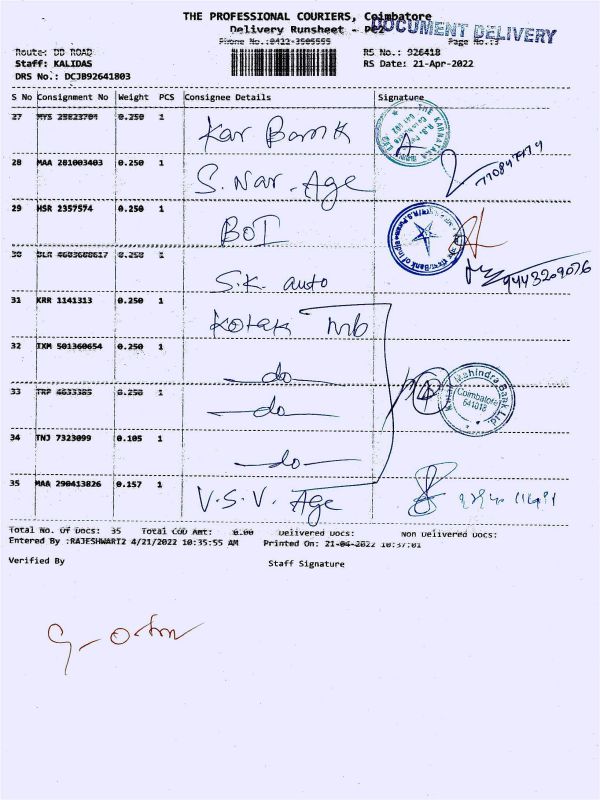 THE PROFESSIONAL COURIERS, Coimbatore
Delivery Runsheet - PE2
DOCUMENT DELIVERY
Phone No.:0422-3505555
Page No.:3
Route: DD ROAD
RS No.: 926418
Staff: KALIDAS
RS Date: 21-Apr-2022
DRS No.: DCJB92641803
S No Consignment No Weight PCS Consignee Details Signature
27 MYS 25823704 0.250 1 Kar Bank
28 MAA 281003403 0.250 1 S. Nar. Age
29 HSR 2357574 0.250 1 BOI
30 BLR 4603688617 0.250 1 S.K. auto 9443209076
31 KRR 1141313 0.250 1 Kotak Mb
32 TXM 501360654 0.250 1 -do-
33 TRP 4633385 0.250 1 -do-
Mahindra Bank Ltd.
Coimbatore
641018
34 TNJ 7323099 0.105 1 -do-
35 MAA 290413826 0.157 1 V.S.V. Age
Total No. Of Docs: 35 Total COD Amt: 0.00 Delivered Docs: Non Delivered Docs:
Entered By :RAJESHWARI2 4/21/2022 10:35:55 AM Printed On: 21-04-2022 10:37:01
Verified By Staff Signature